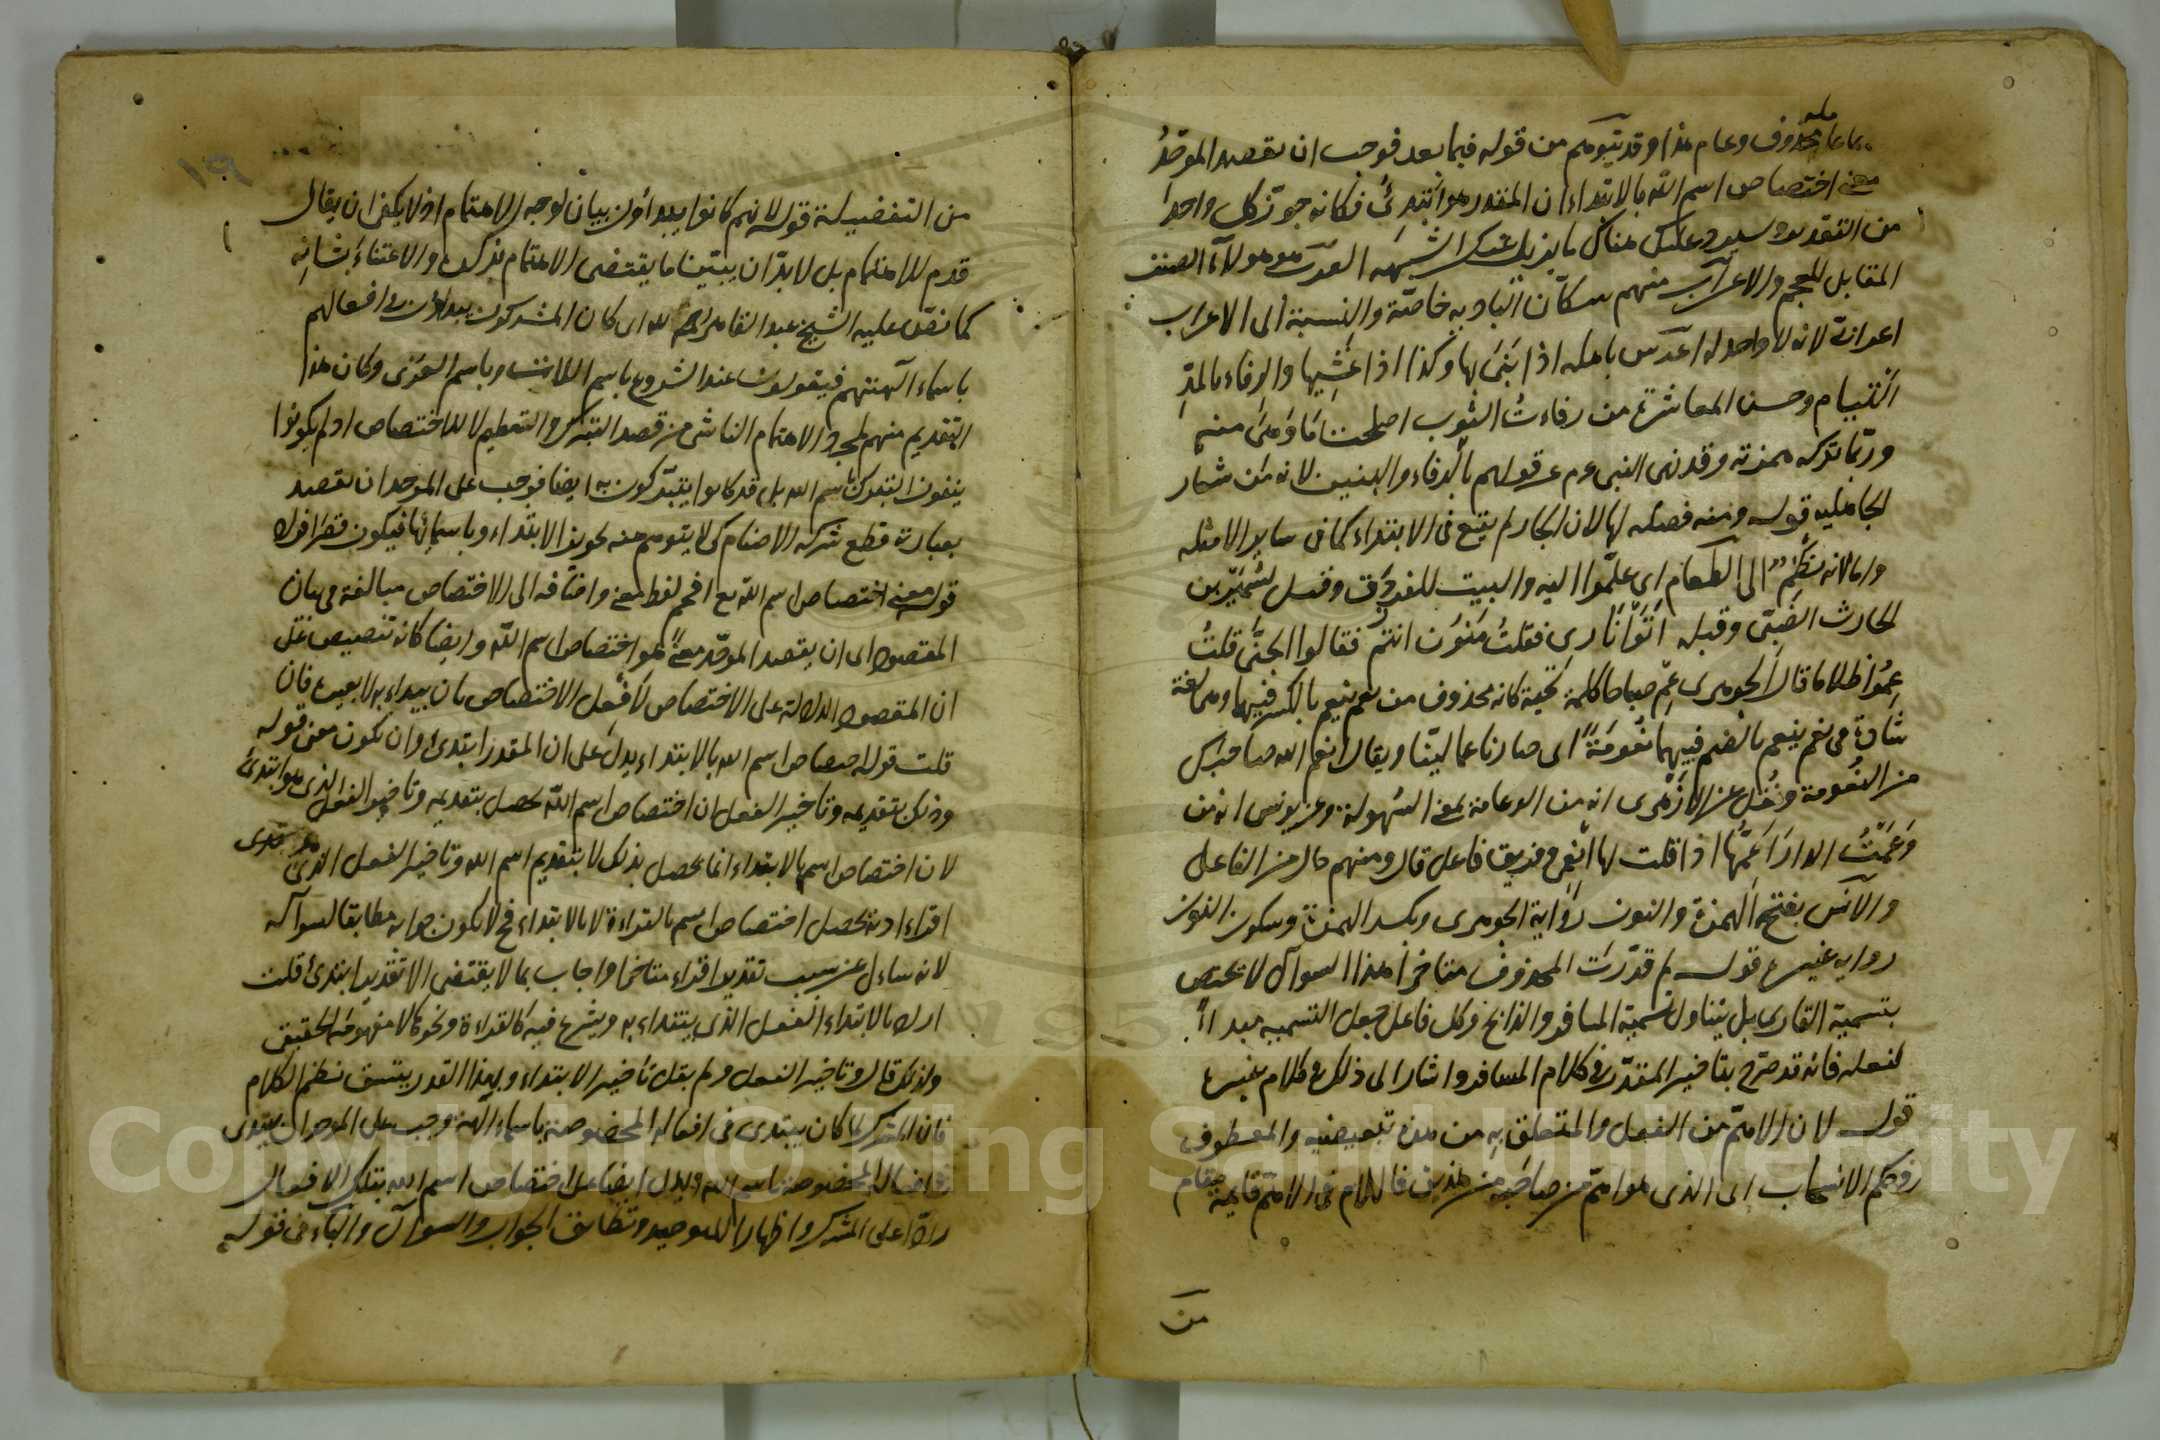 محذوف وعام هذا وقد يتوهم من قوله فيما بعد فوجب ان يقصد الموحّدُ
معنى اختصاص اسم الله بالابتداء ان المقدر هو ابتدئُ فكانه جوّز كل واحد
من التقديرين وسيرد عليك هناك ما يزيل عنك الشبهه العرب هو هولاء الصنف
المقابل للعجم والاعراب منهم سكّان البادية خاصّة والنسبة الى الاعراب
اعرابىّ لانه لا واحد له اعرَس باهله اذا بَنَى بها وكذا اذا غَشِيها والرِفاء بالمدّ
التيام وحسن المعاشرة من رفاءتُ الثوب اصلحت ما وَهَى منه
وربّما تركه همزته وقد نهى النبى عم عن قولهم بالرفاء والبنين لانه من شعار
الجاهلية قوله ومنه فصله لها لان الجار لم يقع فى الابتداء كما فى ساير الامثله
الى الطعام اى هلمّوا اليه والبيت للفرزدق وقيل لشُمَيْر بن
الحارث الضَبّى وقبله اَتَوْا نَارى فقلتُ مَنُون انتم فقالوا الجنُّ قلتُ
عِمُوا ظلاما قال الجوهرى عِمْ صباحا كلمة تحية كانه محذوف من نعم ينعم بالكسر فيهما وهى لغة
شاذة من نعم ينعم بالضم فيهما نعومةً اى صار ناعما ليّنا ويقال انعم الله صباحك
من النعومة ونُقل عن الازهرى انه من الوعامة بمعنى السهولة وعن يونس انه من
وَعَمْتُ الدارَ اَعِمُها اذا قلت لها انعمى وفريق فاعل قال ومنهم حال من الفاعل
والاَنَس بفتح الهمزة والنون رواية الجوهرى وبكسر الهمزة وسكون النون
رواية غيره قوله لم قدّرت المحذوف متاخرا هذا السوال لا يختص
بتسمية القارى بل يتناول تسمية المسافر والذابح وكل فاعل جعل التسمية مبداً
لفعله فانه قد صرّح بتاخير المقدّر فى كلام المسافر واشار الى ذلك فى كلام غيره
قوله لان الاهمّ من الفعل والمتعلق به من هذه تبعيضيه والمعطوف
فى حكم الانسحاب اى الذى هو اهمّ من صاحبه من هذين فاللام فى الاهمّ قايمة مقام
من
من التفضيلية قوله لانهم كانوا يبداون بيان لوجه الاهتمام اذ لا يكفى ان يقال
قدم للاهتمام بل لا بدّ ان يبيّن ما يقتضى الاهتمام بذكره والاعتناء بشانِه
كما نصّ عليه الشيخ عبد القاهر رحمه الله اى كان المشركون يبداون فى افعالهم
باسماء آلهتهم فيقولون عند الشروع باسم اللات وباسم العزى وكان هذا
التقديم منهم لمجرد الاهتمام الناشى من قصد التبرك والتعظيم لا للاختصاص اذ لم يكونوا
ينفون التبرك باسم الله بل قد كانوا يتبرّكون به ايضا فوجب على الموحد ان يقصد
بعبارته قطع شركة الاصنام كى لا يتوهم منه تجويز الابتداء وباسمائها فيكون قصر افراد
قوله معنى اختصاص اسم الله تع اقحم لفظ معنى واضافه الى الاختصاص مبالغة فى بيان
المقصود اى ان يقصد الموحّد معنًى هو اختصاص اسم الله وايضا كانه تنصيص على
ان المقصود الدلالة على الاختصاص لا فعل الاختصاص بان يبداء به لا بغيره فان
قلت قوله اختصاص اسم الله بالابتداء يدل على ان المقدر ابتدئ وان يكون معنى قوله
وذلك بتقديمه وتاخير الفعل ان اختصاص اسم الله يحصل بتقديمه وتاخير الفعل الذى هو ابتدئ
لان اختصاص اسم بالابتداء انما يحصل بذلك لا بتقديم اسم الله وتاخير الفعل الذى هو
اقراء اذ به يحصل اختصاص اسم بالقراءة لا بالابتداء فح لا يكون جوابه مطابقا لسواله
لانه ساءل عن سبب تقدير اقراء متاخرا واجاب بما لا يقتضى الا تقدير ابتدئ قلت
اراد بالابتداء الفعل الذى يبتداء به ويشرع فيه كالقراءة ونحوها لا مفهومه الحقيقى
ولذلك قال وتاخير الفعل ولم يقل تاخير الابتداء وبهذا القدر يتسق نظم الكلام
فان المشرك لما كان يبتدى فى افعاله المخصوصة باسماء آلهته وجب على الموحد ان يبتدى
فى افعاله المخصوصة باسم الله ويدل ايضا على اختصاص اسم الله بتلك الافعال
ردًّا على المشرك واظهارا للتوحيد وتطابق الجواب والسوال والباء فى قوله